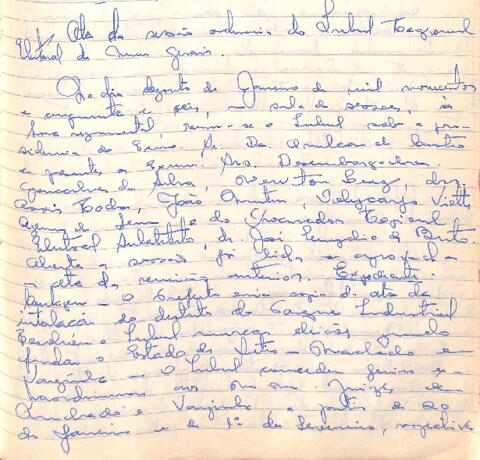 Ata da sessão ordinaria do Tribunal Regional
Eleitoral de Minas Gerais.
No dia dezoito de Janeiro de mil novecentos
e cinquenta e seis, na sala de sessões, à
hora regimental, reuniu-se o Tribunal sob a pre-
sidencia do Exmo. Sr. Des. Amilcar de Castro
e presentes os Exmos. Srs. Desembargadores
Gonçalves da Silva, Newton Luz, drs.
Assis Rocha, João Martins,
e do Procurador Regional
Eleitoral Substituto, dr. José
Aberta a sessão foi lida e aprovada
a ata da reunião anterior. Expediente:
Contagem - O Prefeito envia copia da ata da
instalação do distrito do Parque Industrial
e Tribunal marcar eleições quando
findar o Estado de Sitio - Machado e
Varginha - O Tribunal concedeu ferias ex-
traordinarias aos Juizes de
Machado e Varginha a partir de 20
de Janeiro e de 1º de Fevereiro, respectiva